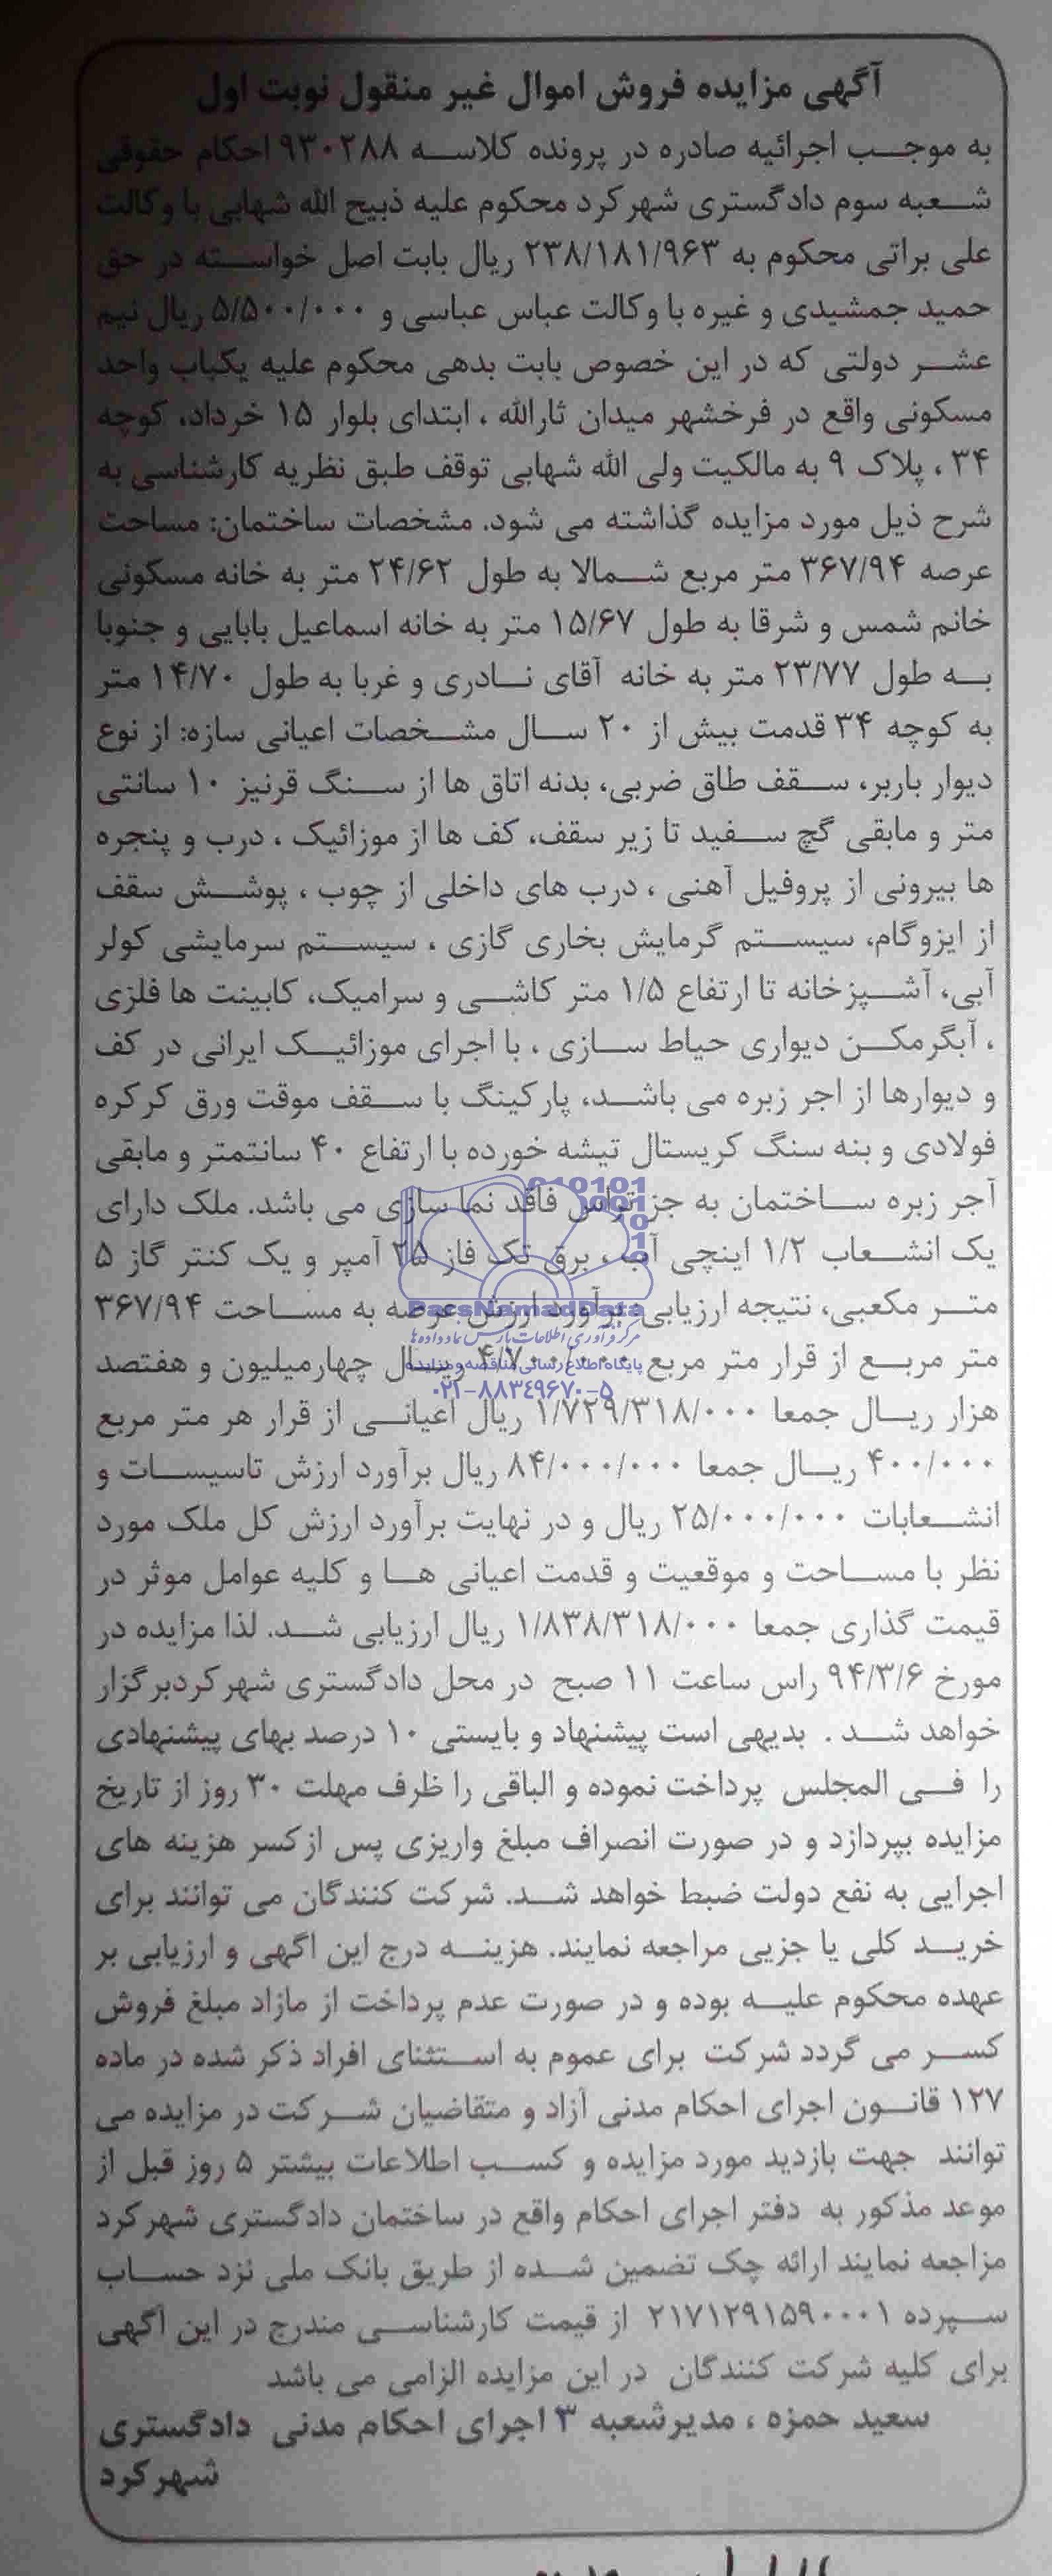 آگهی مزایده فروش اموال غیر منقول نوبت اول
به موجب اجرائیه صادره در پرونده کلاسه ۹۳۰۲۸۸ احکام حقوقی
شعبه سوم دادگستری شهرکرد محکوم علیه ذبیح الله شهابی با وکالت
علی براتی محکوم به ۲۳۸/۱۸۱/۹۶۳ ریال بابت اصل خواسته در حق
حمید جمشیدی و غیره با وکالت عباس عباسی و ۵/۵۰۰/۰۰۰ ریال نیم
عشر دولتی که در این خصوص بابت بدهی محکوم علیه یکباب واحد
مسکونی واقع در فرخشهر میدان ثارالله ، ابتدای بلوار ۱۵ خرداد، کوچه
۳۴ ، پلاک ۹ به مالکیت ولی الله شهابی توقف طبق نظریه کارشناسی به
شرح ذیل مورد مزایده گذاشته می شود. مشخصات ساختمان: مساحت
عرصه ۳۶۷/۹۴ متر مربع شمالا به طول ۲۴/۶۲ متر به خانه مسکونی
خانم شمس و شرقا به طول ۱۵/۶۷ متر به خانه اسماعیل بابایی و جنوبا
به طول ۲۳/۷۷ متر به خانه آقای نادری و غربا به طول ۱۴/۷۰ متر
به کوچه ۳۴ قدمت بیش از ۲۰ سال مشخصات اعیانی سازه: از نوع
دیوار باربر، سقف طاق ضربی، بدنه اتاق ها از سنگ قرنیز ۱۰ سانتی
متر و مابقی گچ سفید تا زیر سقف، کف ها از موزائیک ، درب و پنجره
ها بیرونی از پروفیل آهنی ، درب های داخلی از چوب ، پوشش سقف
از ایزوگام، سیستم گرمایش بخاری گازی ، سیستم سرمایشی کولر
آبی، آشپزخانه تا ارتفاع ۱/۵ متر کاشی و سرامیک، کابینت ها فلزی
، آبگرمکن دیواری حیاط سازی ، با اجرای موزائیک ایرانی در کف
و دیوارها از اجر زبره می باشد، پارکینگ با سقف موقت ورق کرکره
فولادی و بنه سنگ کریستال تیشه خورده با ارتفاع ۴۰ سانتمتر و مابقی
آجر زبره ساختمان به جز تراس فاقد نما سازی می باشد. ملک دارای
یک انشعاب ۱/۲ اینچی آب ، برق تک فاز ۲۵ آمپر و یک کنتر گاز ۵
متر مکعبی، نتیجه ارزیابی: برآورد ارزش عرصه به مساحت ۳۶۷/۹۴
متر مربع از قرار متر مربع ۴/۷۰۰/۰۰۰ ریال چهارمیلیون و هفتصد
هزار ریال جمعا ۱/۷۲۹/۳۱۸/۰۰۰ ریال اعیانی از قرار هر متر مربع
۴۰۰/۰۰۰ ریال جمعا ۸۴/۰۰۰/۰۰۰ ریال برآورد ارزش تاسیسات و
انشعابات ۲۵/۰۰۰/۰۰۰ ریال و در نهایت برآورد ارزش کل ملک مورد
نظر با مساحت و موقعیت و قدمت اعیانی ها و کلیه عوامل موثر در
قیمت گذاری جمعا ۱/۸۳۸/۳۱۸/۰۰۰ ریال ارزیابی شد. لذا مزایده در
مورخ ۹۴/۳/۶ راس ساعت ۱۱ صبح در محل دادگستری شهرکردبرگزار
خواهد شد . بدیهی است پیشنهاد و بایستی ۱۰ درصد بهای پیشنهادی
را فی المجلس پرداخت نموده و الباقی را ظرف مهلت ۳۰ روز از تاریخ
مزایده بپردازد و در صورت انصراف مبلغ واریزی پس از کسر هزینه های
اجرایی به نفع دولت ضبط خواهد شد. شرکت کنندگان می توانند برای
خرید کلی یا جزیی مراجعه نمایند. هزینه درج این اگهی و ارزیابی بر
عهده محکوم علیه بوده و در صورت عدم پرداخت از مازاد مبلغ فروش
کسر می گردد شرکت برای عموم به استثنای افراد ذکر شده در ماده
۱۲۷ قانون اجرای احکام مدنی آزاد و متقاضیان شرکت در مزایده می
توانند جهت بازدید مورد مزایده و کسب اطلاعات بیشتر ۵ روز قبل از
موعد مذکور به دفتر اجرای احکام واقع در ساختمان دادگستری شهرکرد
مزاجعه نمایند ارائه چک تضمین شده از طریق بانک ملی نزد حساب
سپرده ۲۱۷۱۲۹۱۵۹۰۰۰۱ از قیمت کارشناسی مندرج در این آگهی
برای کلیه شرکت کنندگان در این مزایده الزامی می باشد
سعید حمزه ، مدیرشعبه ۳ اجرای احکام مدنی دادگستری
شهرکرد
ParsNamadData
مرکز فرآوری اطلاعات پارس نماد داده ها
پایگاه اطلاع رسانی مناقصه و مزایده
۰۲۱-۸۸۳۴۹۶۷۰-۵